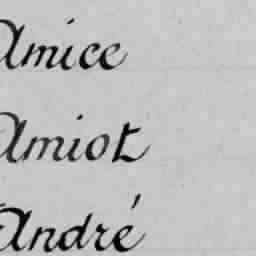 Amice
Amiot
André